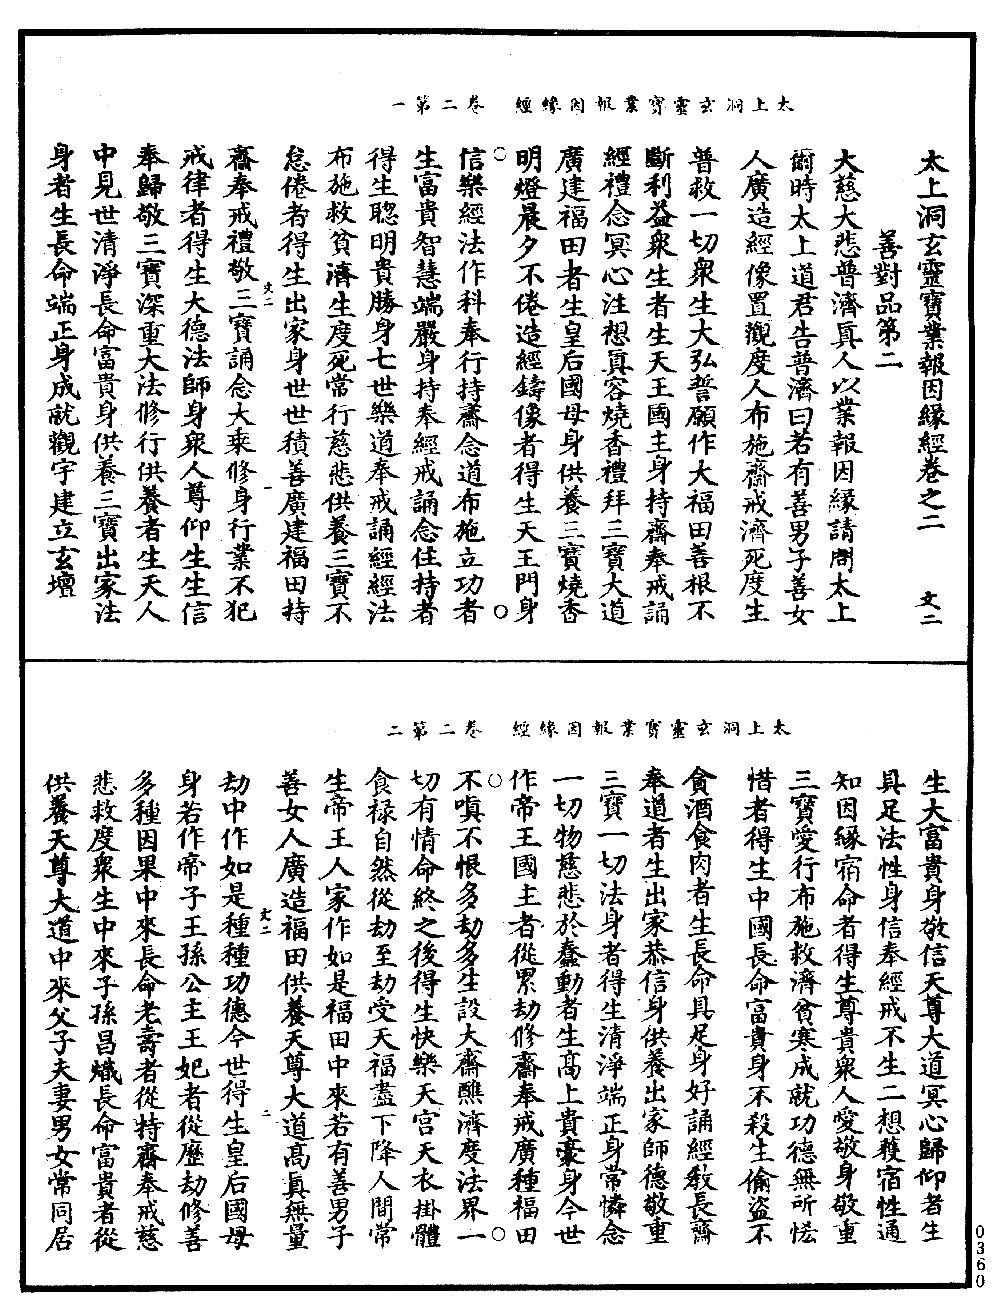 太上洞玄靈寶業報因緣經　卷二第一
太上洞玄靈寶業報因緣經卷之二　文二
善對品第二
大慈大悲普濟真人以業報因緣請問太上
爾時太上道君告普濟曰若有善男子善女
人廣造經像置觀度人布施齋戒濟死度生
普救一切衆生大弘誓願作大福田善根不
斷利益衆生者生天王國主身持齋奉戒誦
經禮念冥心注想真容燒香禮拜三寶大道
廣建福田者生皇后國母身供養三寶燒香
明燈晨夕不倦造經鑄像者得生天王門身
信樂經法作科奉行持齋念道布施立功者
生富貴智慧端嚴身持奉經戒誦念住持者
得生聰明貴勝身七世樂道奉戒誦經經法
布施救貧濟生度死常行慈悲供養三寶不
怠倦者得生出家身世世積善廣建福田持
文二　一
齋奉戒禮敬三寶誦念大乘修身行業不犯
戒律者得生大德法師身衆人尊仰生生信
奉歸敬三寶深重大法修行供養者生天人
中見世清淨長命富貴身供養三寶出家法
身者生長命端正身成就觀宇建立玄壇
太上洞玄靈寶業報因緣經　卷二第二
生大富貴身敬信天尊大道冥心歸仰者生
具足法性身信奉經戒不生二想獲宿性通
知因緣宿命者得生尊貴衆人愛敬身敬重
三寶愛行布施救濟貧寒成就功德無所恡
惜者得生中國長命富貴身不殺生偷盜不
貪酒食肉者生長命具足身好誦經教長齋
奉道者生出家恭信身供養出家師德敬重
三寶一切法身者得生清淨端正身常憐念
一切物慈悲於蠢動者生高上貴豪身今世
作帝王國主者從累劫修齋奉戒廣種福田
不嗔不恨多劫多生設大齋醮濟度法界一
切有情命終之後得生快樂天宮天衣掛體
食祿自然從劫至劫受天福盡下降人間常
生帝王人家作如是福田中來若有善男子
善女人廣造福田供養天尊大道高真無量
文二　二
劫中作如是種種功德今世得生皇后國母
身若作帝子王孫公主王妃者從歷劫修善
多種因果中來長命老壽者從持齋奉戒慈
悲救度衆生中來子孫昌熾長命富貴者從
供養天尊大道中來父子夫妻男女常同居
0360